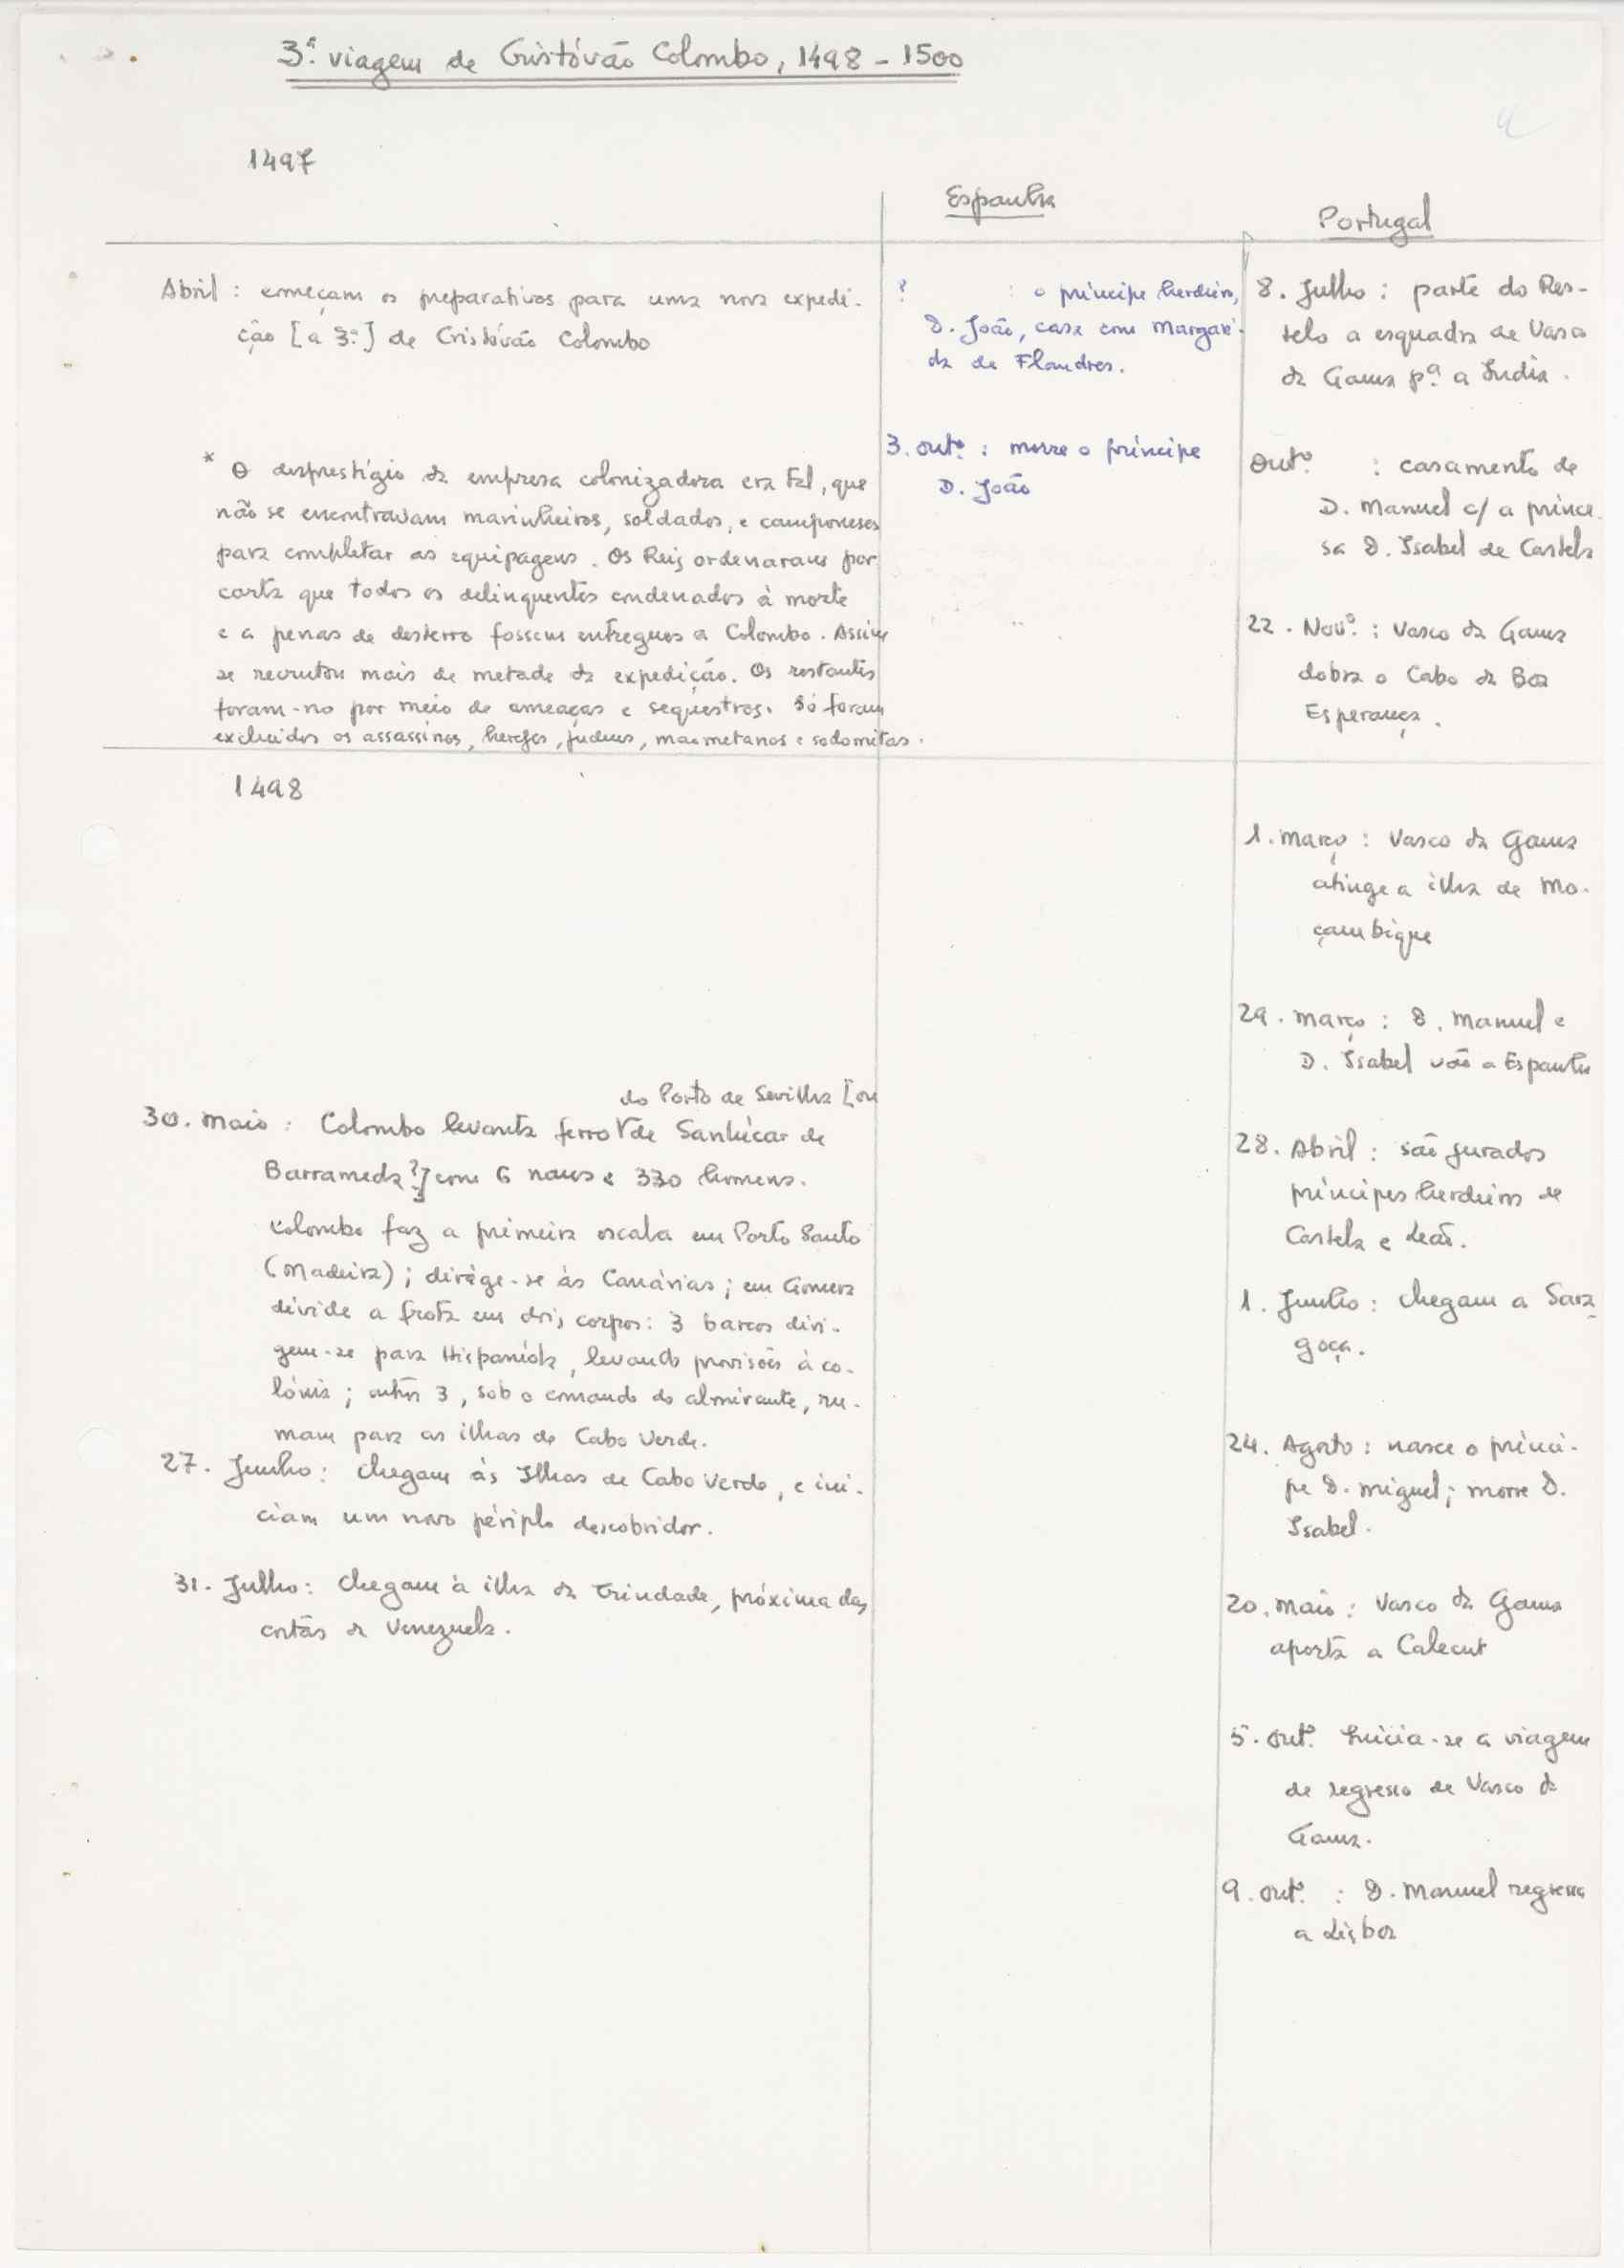 3ª. viagem de Cristóvão Colombo, 1498 - 1500
1497
Espanha
Portugal
Abril : começam os preparativos para uma nova expedi-
ção [a 3ª.] de Cristóvão Colombo
* O desprestígio da empresa colonizadora era tal, que
não se encontravam marinheiros, soldados, e camponeses
para completar as equipagens. Os Reis ordenaram por
carta que todos os delinquentes condenados à morte
e a penas de desterro fossem entregues a Colombo. Assim
se recrutou mais de metade da expedição. Os restantes
foram-no por meio de ameaças e sequestros. Só foram
excluídos os assassinos, hereges, judeus, maometanos e sodomitas.
? : o príncipe herdeiro,
D. João, casa com Margari-
da de Flandres.
3. outº. : morre o príncipe
D. João
8. Julho : parte do Res-
telo a esquadra de Vasco
da Gama pª. a Índia.
Outº. : casamento de
D. Manuel c/ a prince-
sa D. Isabel de Castela
22. Novº. : Vasco da Gama
dobra o Cabo da Boa
Esperança.
1498
30. Maio : Colombo levanta ferro do Porto de Sevilha [ou
de Sanlúcar de
Barrameda?] com 6 naus e 330 homens.
Colombo faz a primeira escala em Porto Santo
(Madeira); dirige-se às Canárias; em Gomera
divide a frota em dois corpos: 3 barcos diri-
gem-se para Hispaníola, levando provisões à co-
lónia; outros 3, sob o comando do almirante, ru-
mam para as ilhas de Cabo Verde.
27. Junho : chegam às Ilhas de Cabo Verde, e ini-
ciam um novo périplo descobridor.
31. Julho : Chegam à ilha da Trindade, próxima das
costas da Venezuela.
1. Março : Vasco da Gama
atinge a ilha de Mo-
çambique
29. Março : D. Manuel e
D. Isabel vão a Espanha
28. Abril : são jurados
príncipes herdeiros de
Castela e Leão.
1. Junho : chegam a Sara-
goça.
24. Agosto : nasce o prínci-
pe D. Miguel; morre D.
Isabel.
20. Maio : Vasco da Gama
aporta a Calecut
5. outº. Inicia-se a viagem
de regresso de Vasco da
Gama.
9. outº. : D. Manuel regressa
a Lisboa